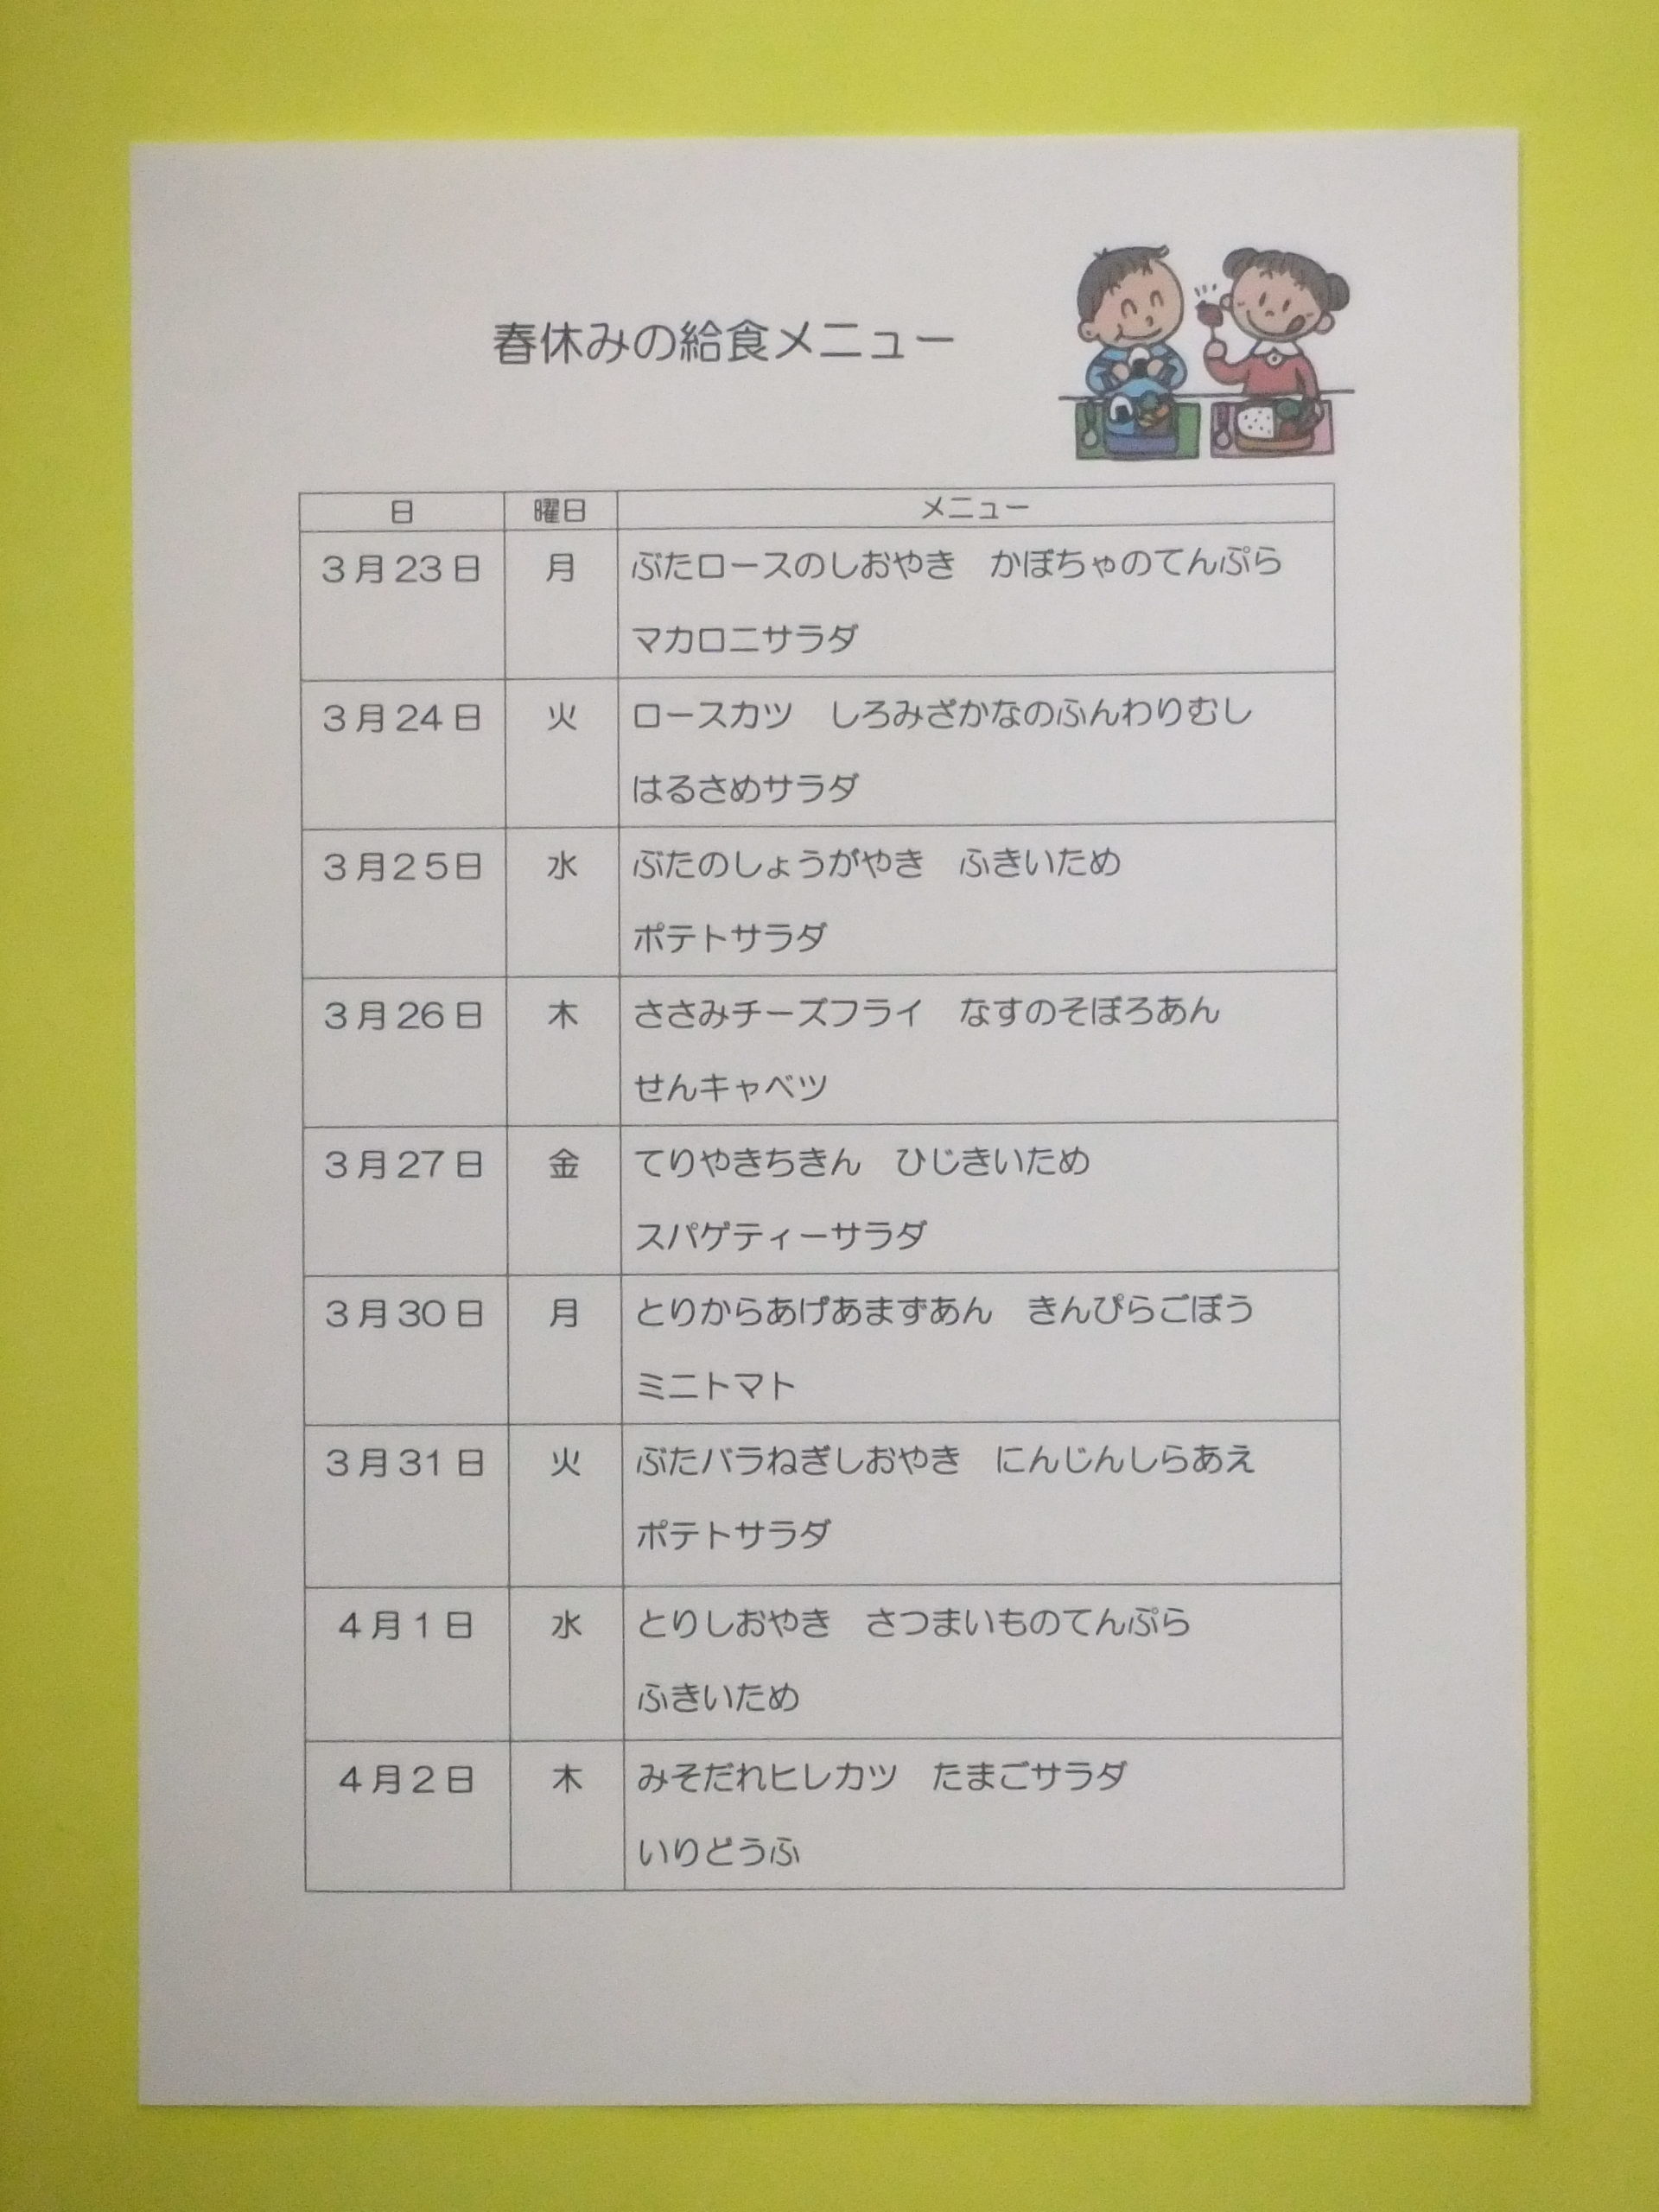 春休みの給食メニュー
日 曜日 メニュー
３月23日 月 ぶたロースのしおやき　かぼちゃのてんぷら
マカロニサラダ
３月24日 火 ロースカツ　しろみざかなのふんわりむし
はるさめサラダ
３月２５日 水 ぶたのしょうがやき　ふきいため
ポテトサラダ
３月26日 木 ささみチーズフライ　なすのそぼろあん
せんキャベツ
３月27日 金 てりやきちきん　ひじきいため
スパゲティーサラダ
３月30日 月 とりからあげあまずあん　きんぴらごぼう
ミニトマト
３月31日 火 ぶたバラねぎしおやき　にんじんしらあえ
ポテトサラダ
４月１日 水 とりしおやき　さつまいものてんぷら
ふきいため
４月２日 木 みそだれヒレカツ　たまごサラダ
いりどうふ